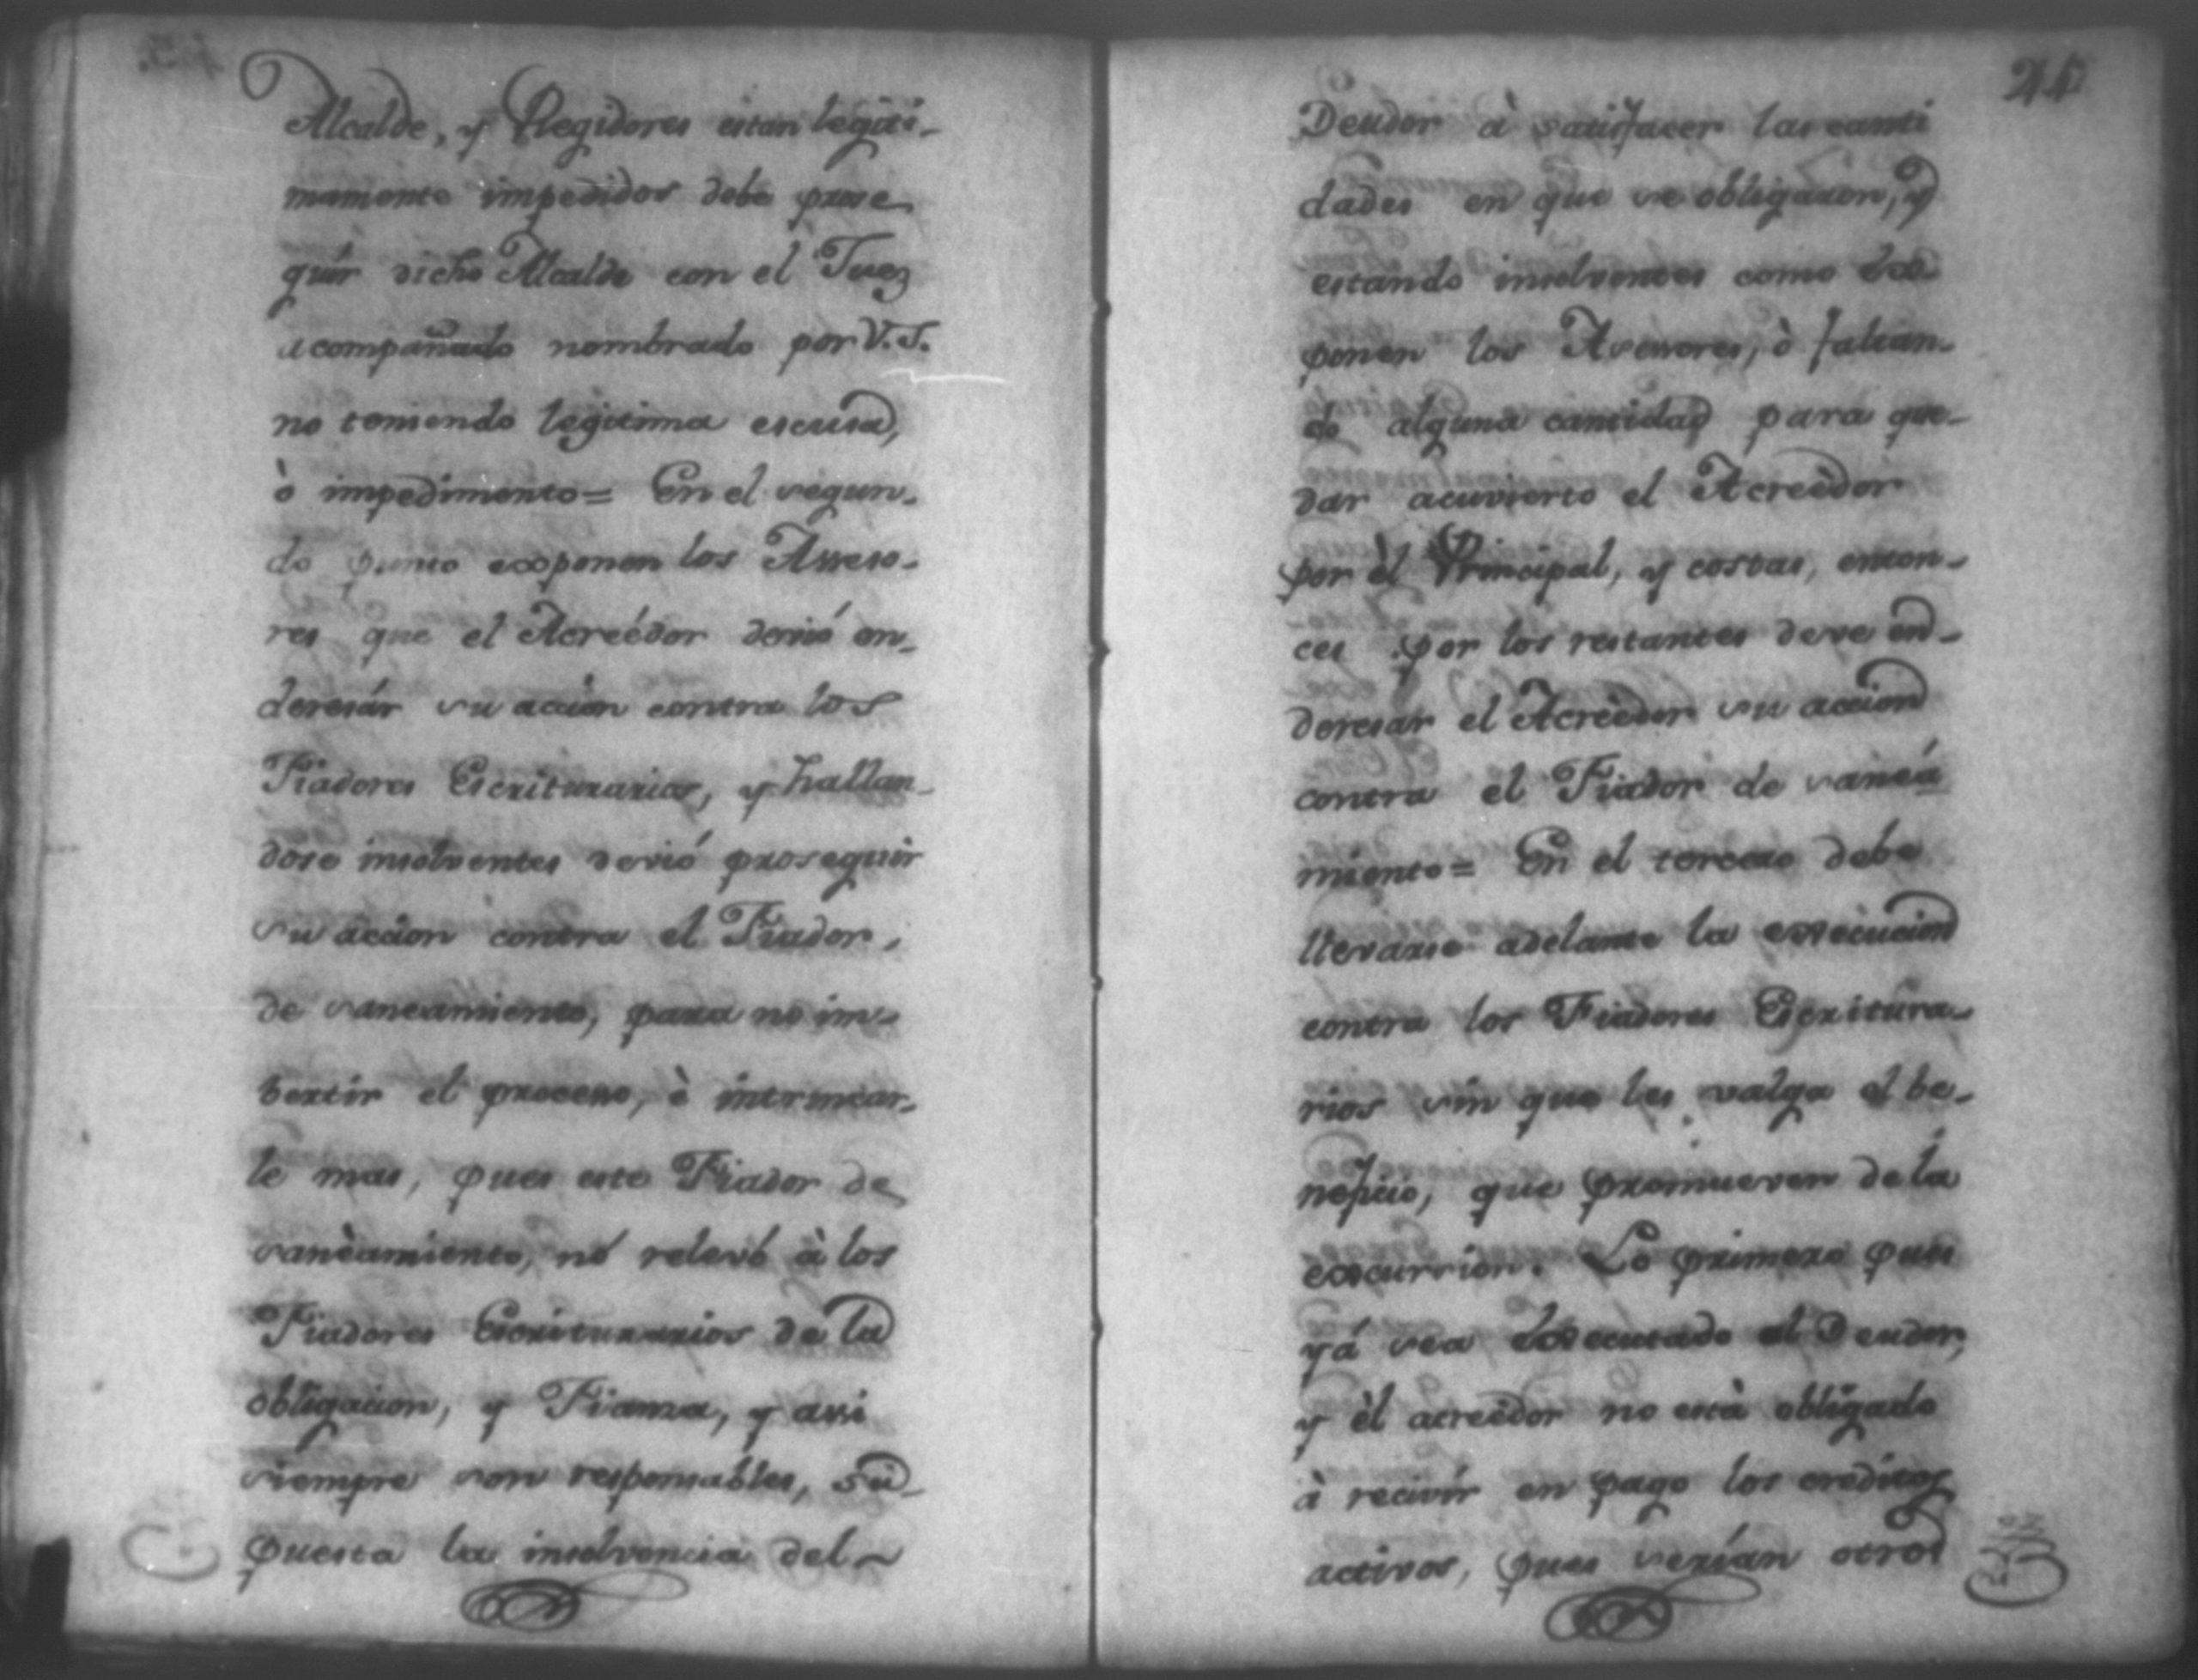 Alcalde, y Regidores estan legiti-
mamente impedidos debe prose
guir dicho Alcalde con el Juez
acompañado nombrado por V.S.
no teniendo legitima escusa,
ò impedimento= En el segun-
do punto exponen los Asseso-
res que el Acreédor devió en-
deresár su accion contra los
Fiadores Escriturarios, y hallan-
dose insolventes devió proseguir
su accion contra el Fiador,
de saneamiento, para no im-
bertir el proceso, è intrincar-
le mas, pues este Fiador de
sanèamiento, nó relevó à los
Fiadores Escriturarios de la
obligacion, y Fianza, y assi
siempre son responsables, su-
puesta la insolvencia del
24
Deudor à satisfacer las canti
dades en que se obligaron, y
estando insolventes como Ex
ponen los Asesores, ò faltan-
do alguna cantidad para que-
dar acuvierto el Acreèdor
por èl Principal, y costas, enton-
ces por los restantes deve en-
deresar el Acreèdor su accion
contra el Fiador de saneá
miento= En el tercero debe
llevarse adelante la execucion
contra los Fiadores Escritura-
rios sin que les valga el be-
neficio, que promueven de la
excursion. Lo primero pues
yá sea Executado el Deudor,
y èl acreèdor no està obligado
à recivir en pago los creditos
activos, pues serían otros